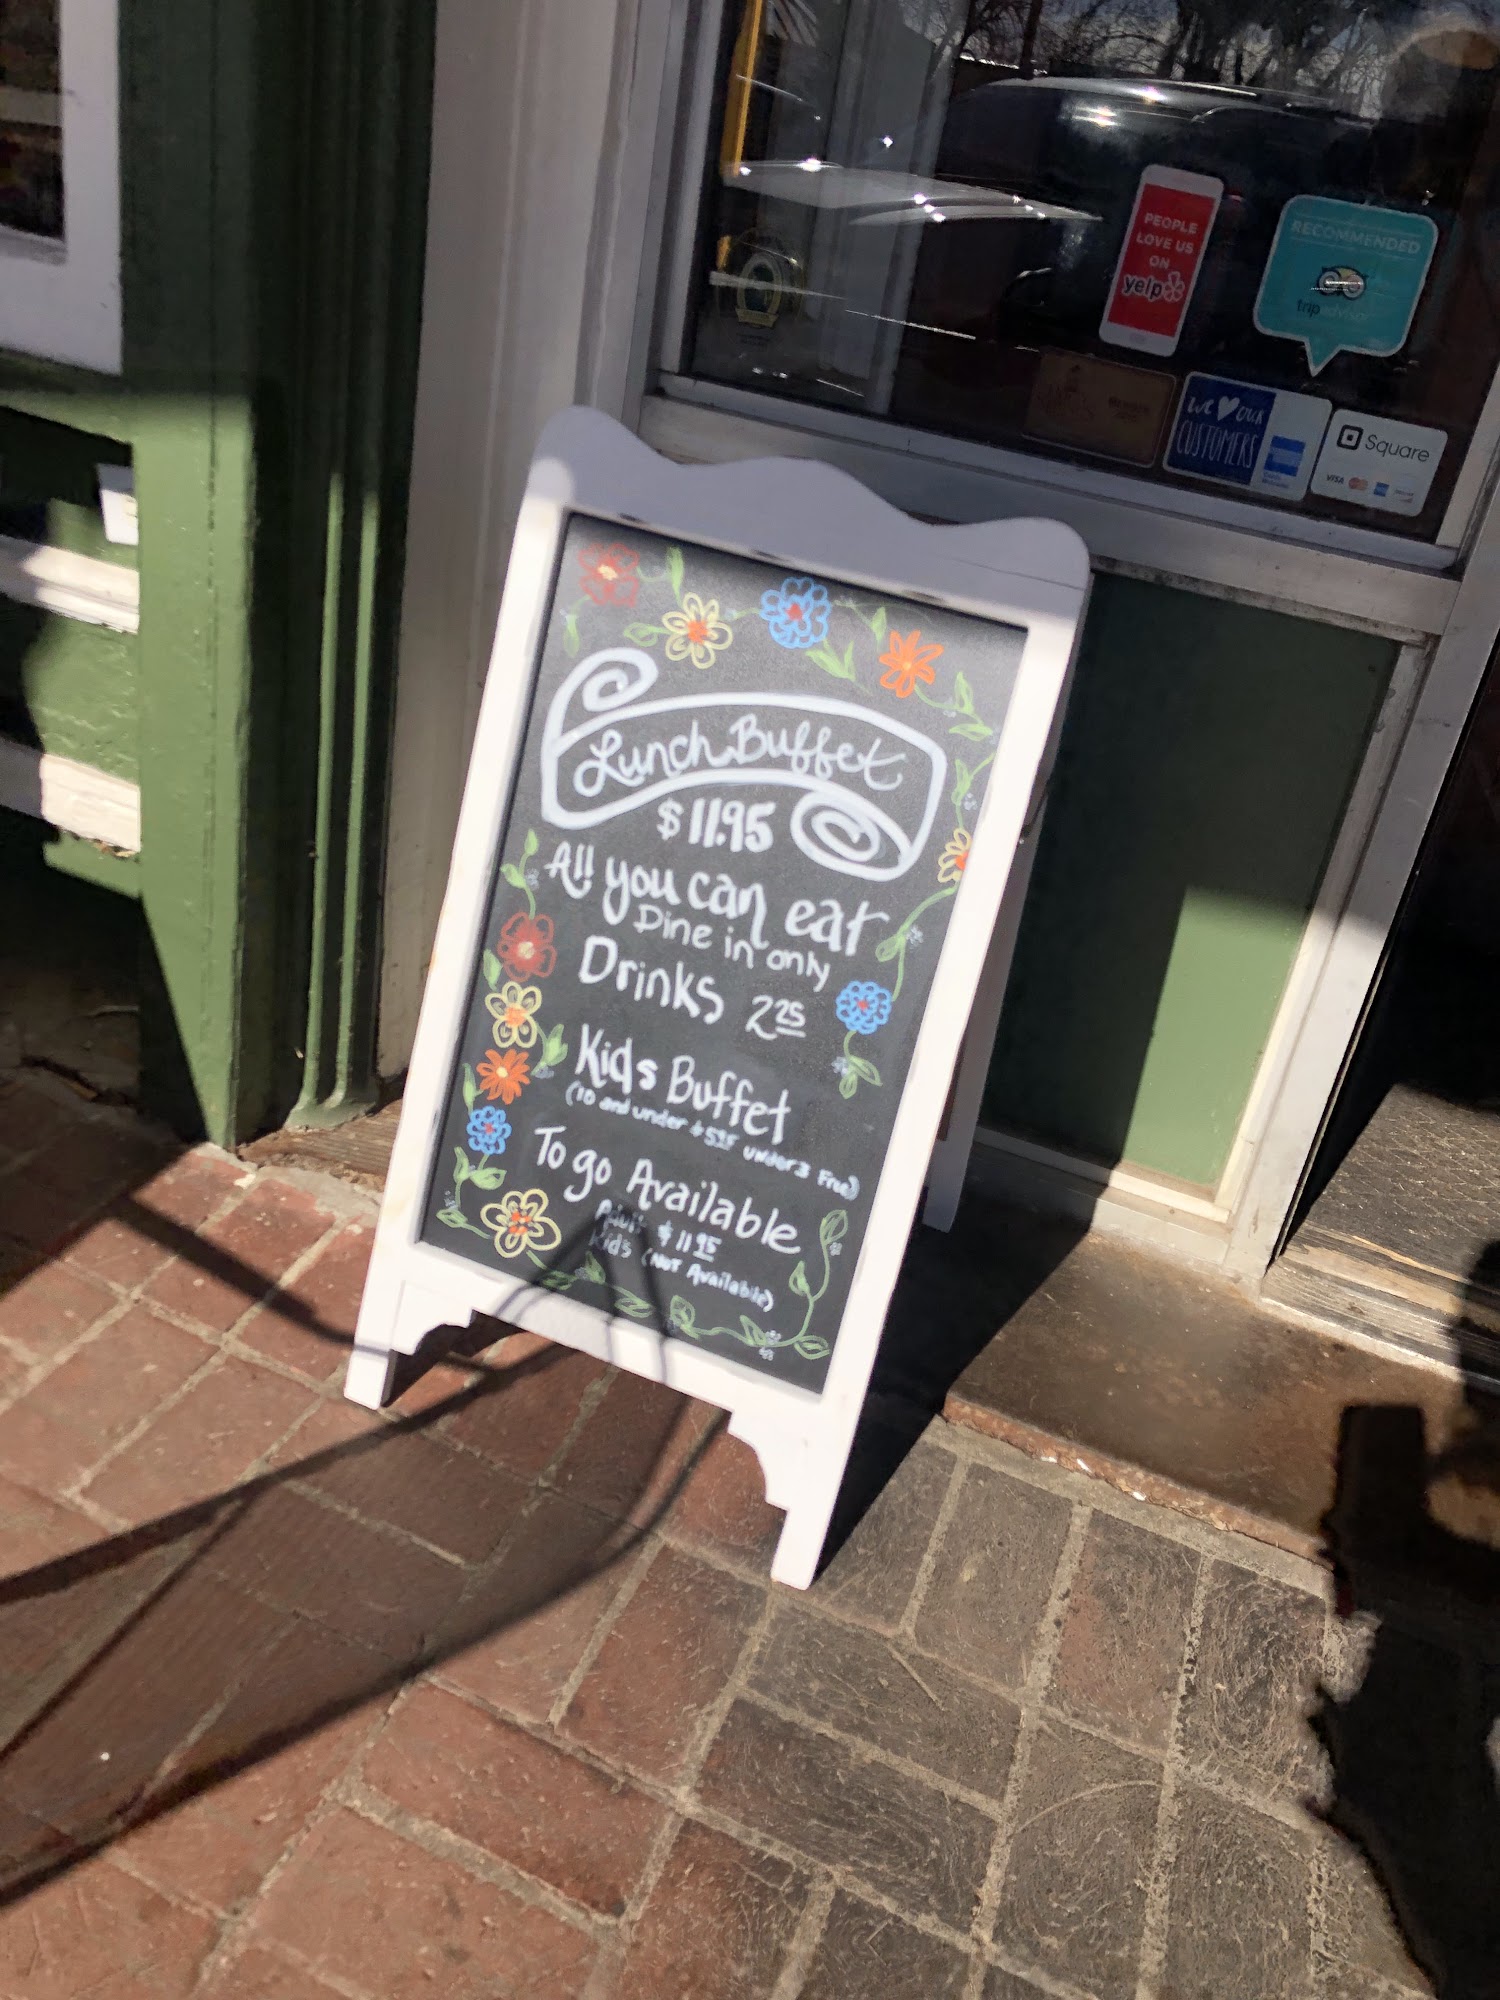 PEOPLE
LOVE US
ON
yelp
RECOMMENDED
tripadvisor
we ♥ our
CUSTOMERS
Square
VISA
Lunch Buffet
$11.95
All you can eat
Dine in only
Drinks 2.25
Kids Buffet
(10 and under $5.95 under 3 Free)
To go Available
Adult $11.95
Kids (Not Available)